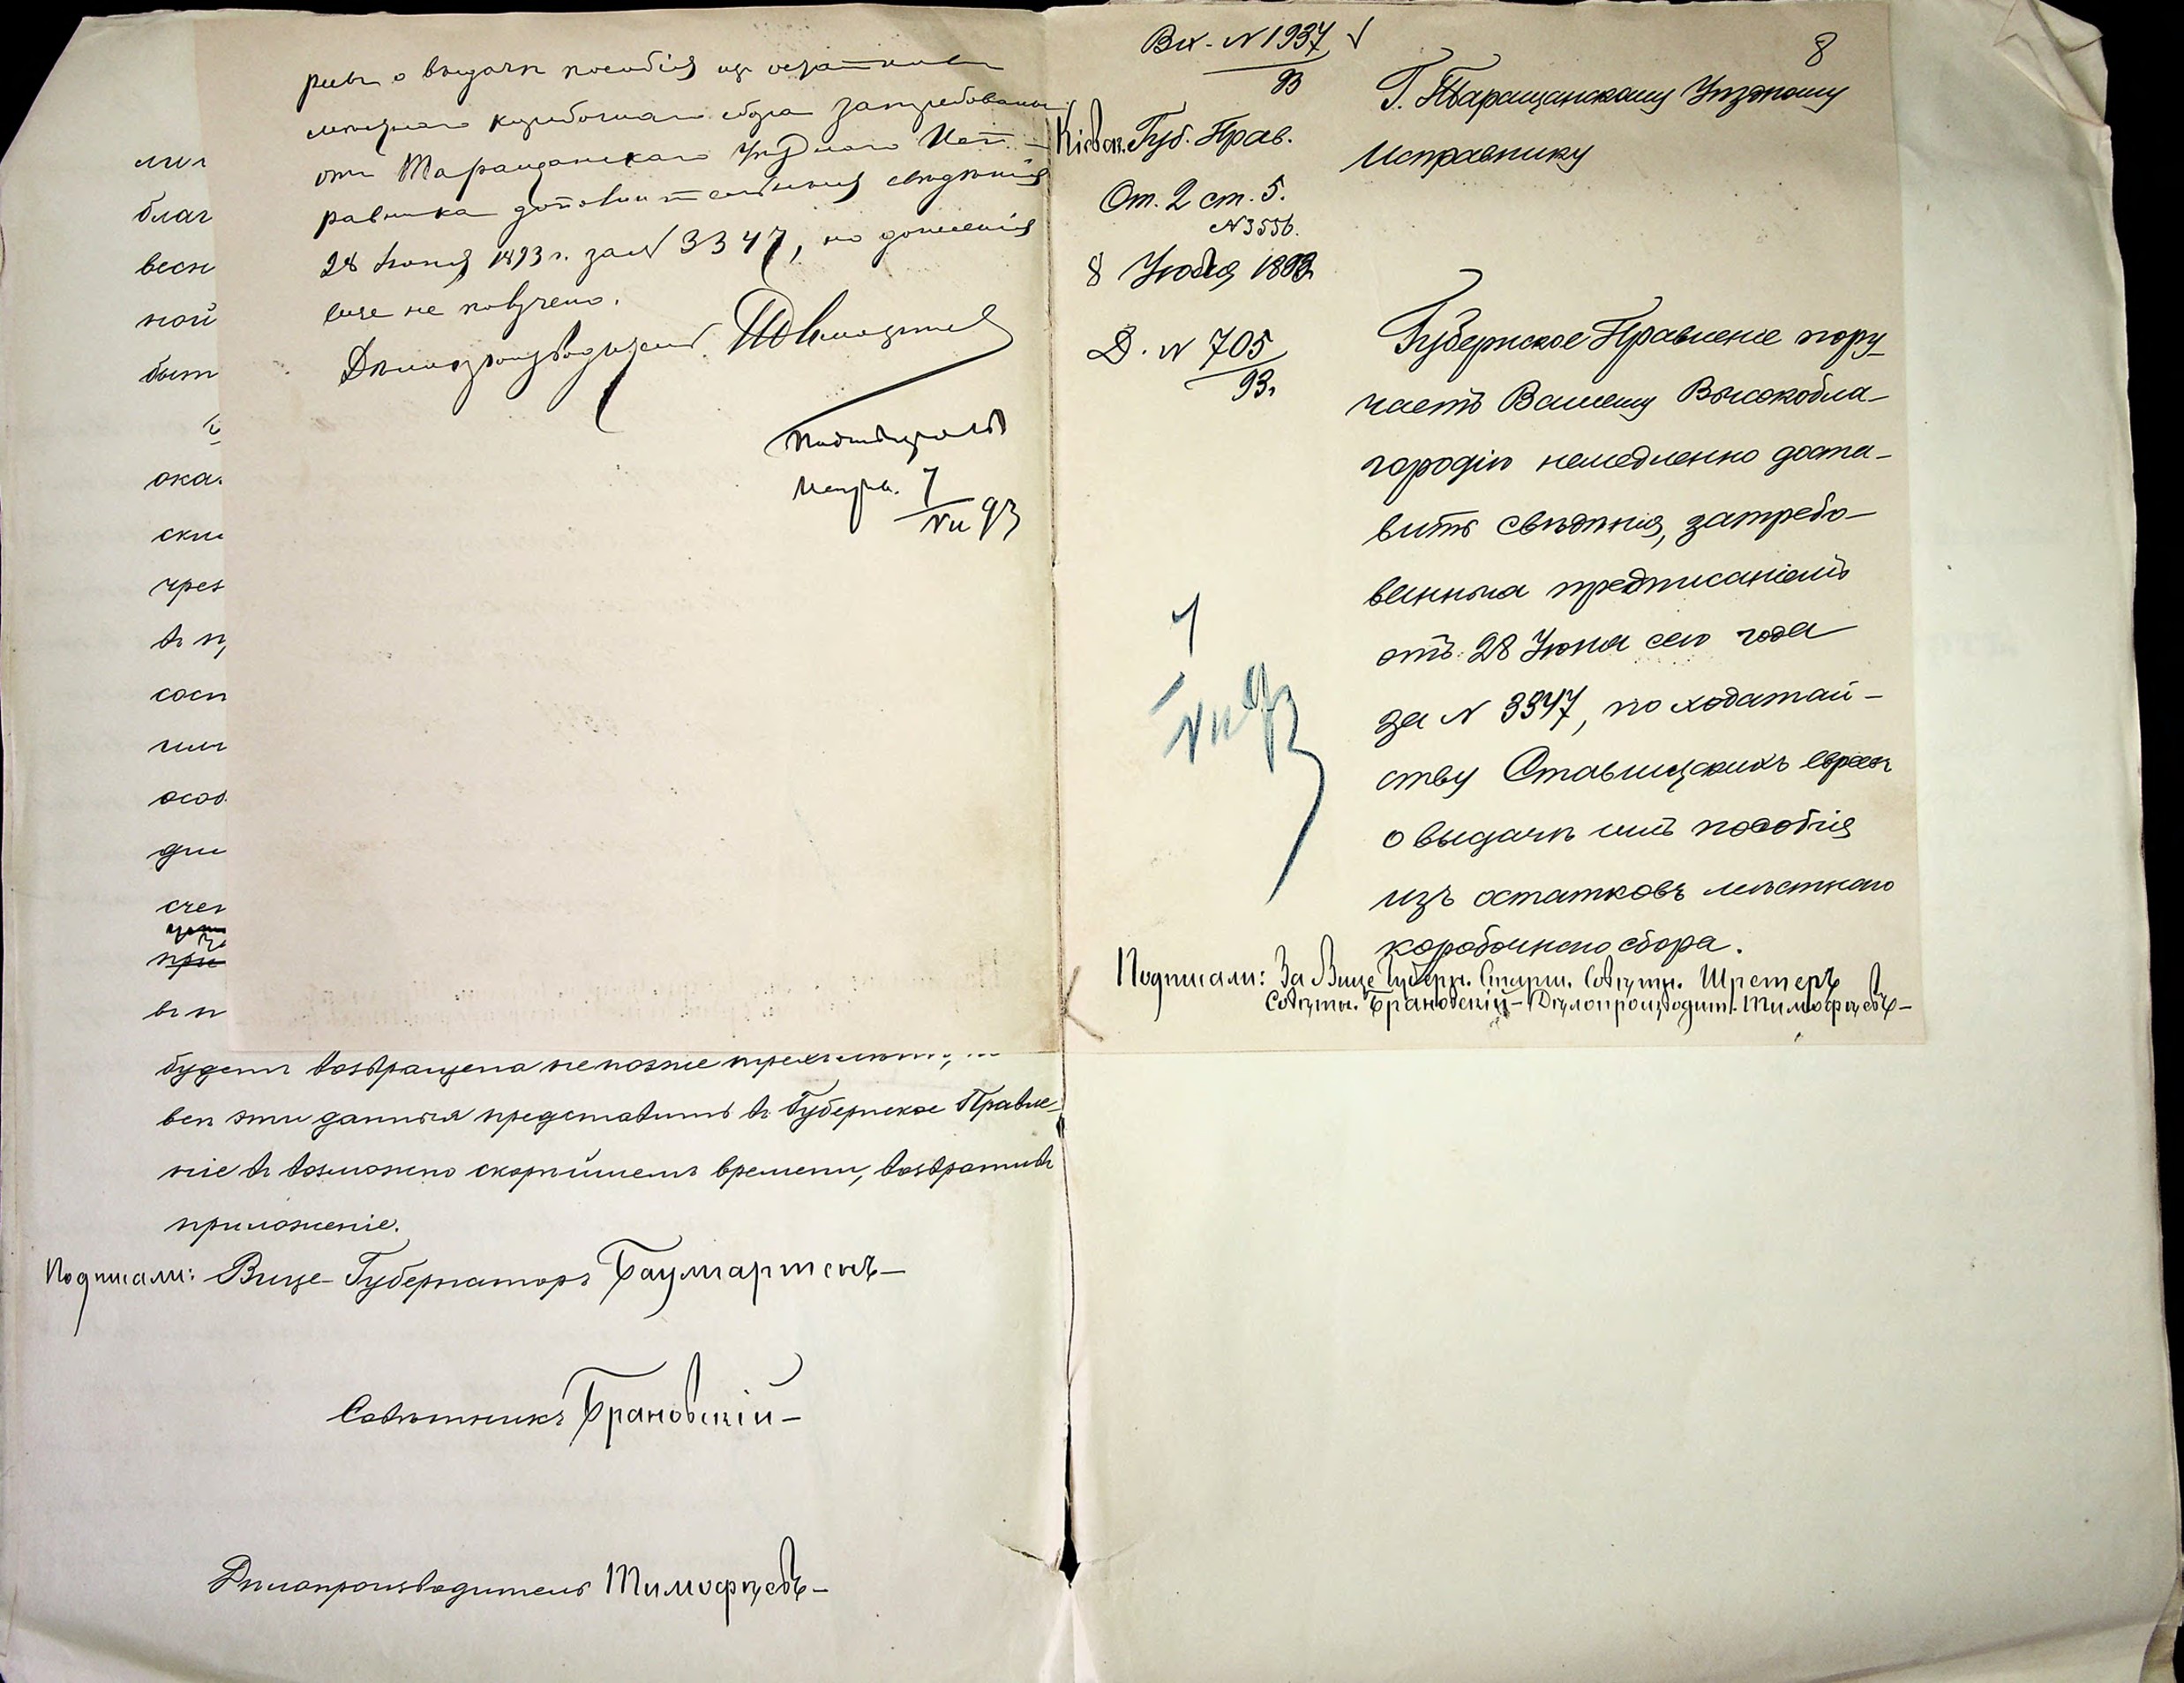 ревъ о выдачѣ пособія изъ остатковъ
мѣстнаго коробочнаго сбора затребованы
отъ Таращанскаго Уѣзднаго Исп-
равника дополнительныя свѣдѣнія
28 Іюня 1893 г. за № 3347, но донесенія
еще не получено.
Дѣлопроизводитель
7
VII 93
мил
благ
весн
ной
быт
ока
ски
чрез
въ п
сосп
чили
особ
дни
счет
при
въ п
будетъ возвращена не позже трехъ лѣтъ,
всѣ эти данныя представить въ Губернское Правле-
ніе въ возможно скорѣйшемъ времени, возвративъ
приложеніе.
Подписали: Вице-Губернаторъ Баумгартенъ-
Совѣтникъ Брановскій-
Дѣлопроизводитель Тимофѣевъ-
8
Вх. № 1937
93
Кіевск. Губ. Прав.
От. 2 ст. 5.
№ 3556.
8 Іюля 1893
Д. № 705
93 г.
Г. Таращанскому Уѣздному
Исправнику
Губернское Правленіе пору-
чаетъ Вашему Высокобла-
городію немедленно доста-
вить свѣдѣнія, затребо-
ванныя предписаніемъ
отъ 28 Іюня сего года
за № 3347, по ходатай-
ству Ставищскихъ евреевъ
о выдачѣ имъ пособія
изъ остатковъ мѣстнаго
коробочнаго сбора.
VII 93
Подписали: За Вице Губерн. Старш. Совѣтн. Шретеръ
Совѣтн. Брановскій- Дѣлопроизводит. Тимофѣевъ-